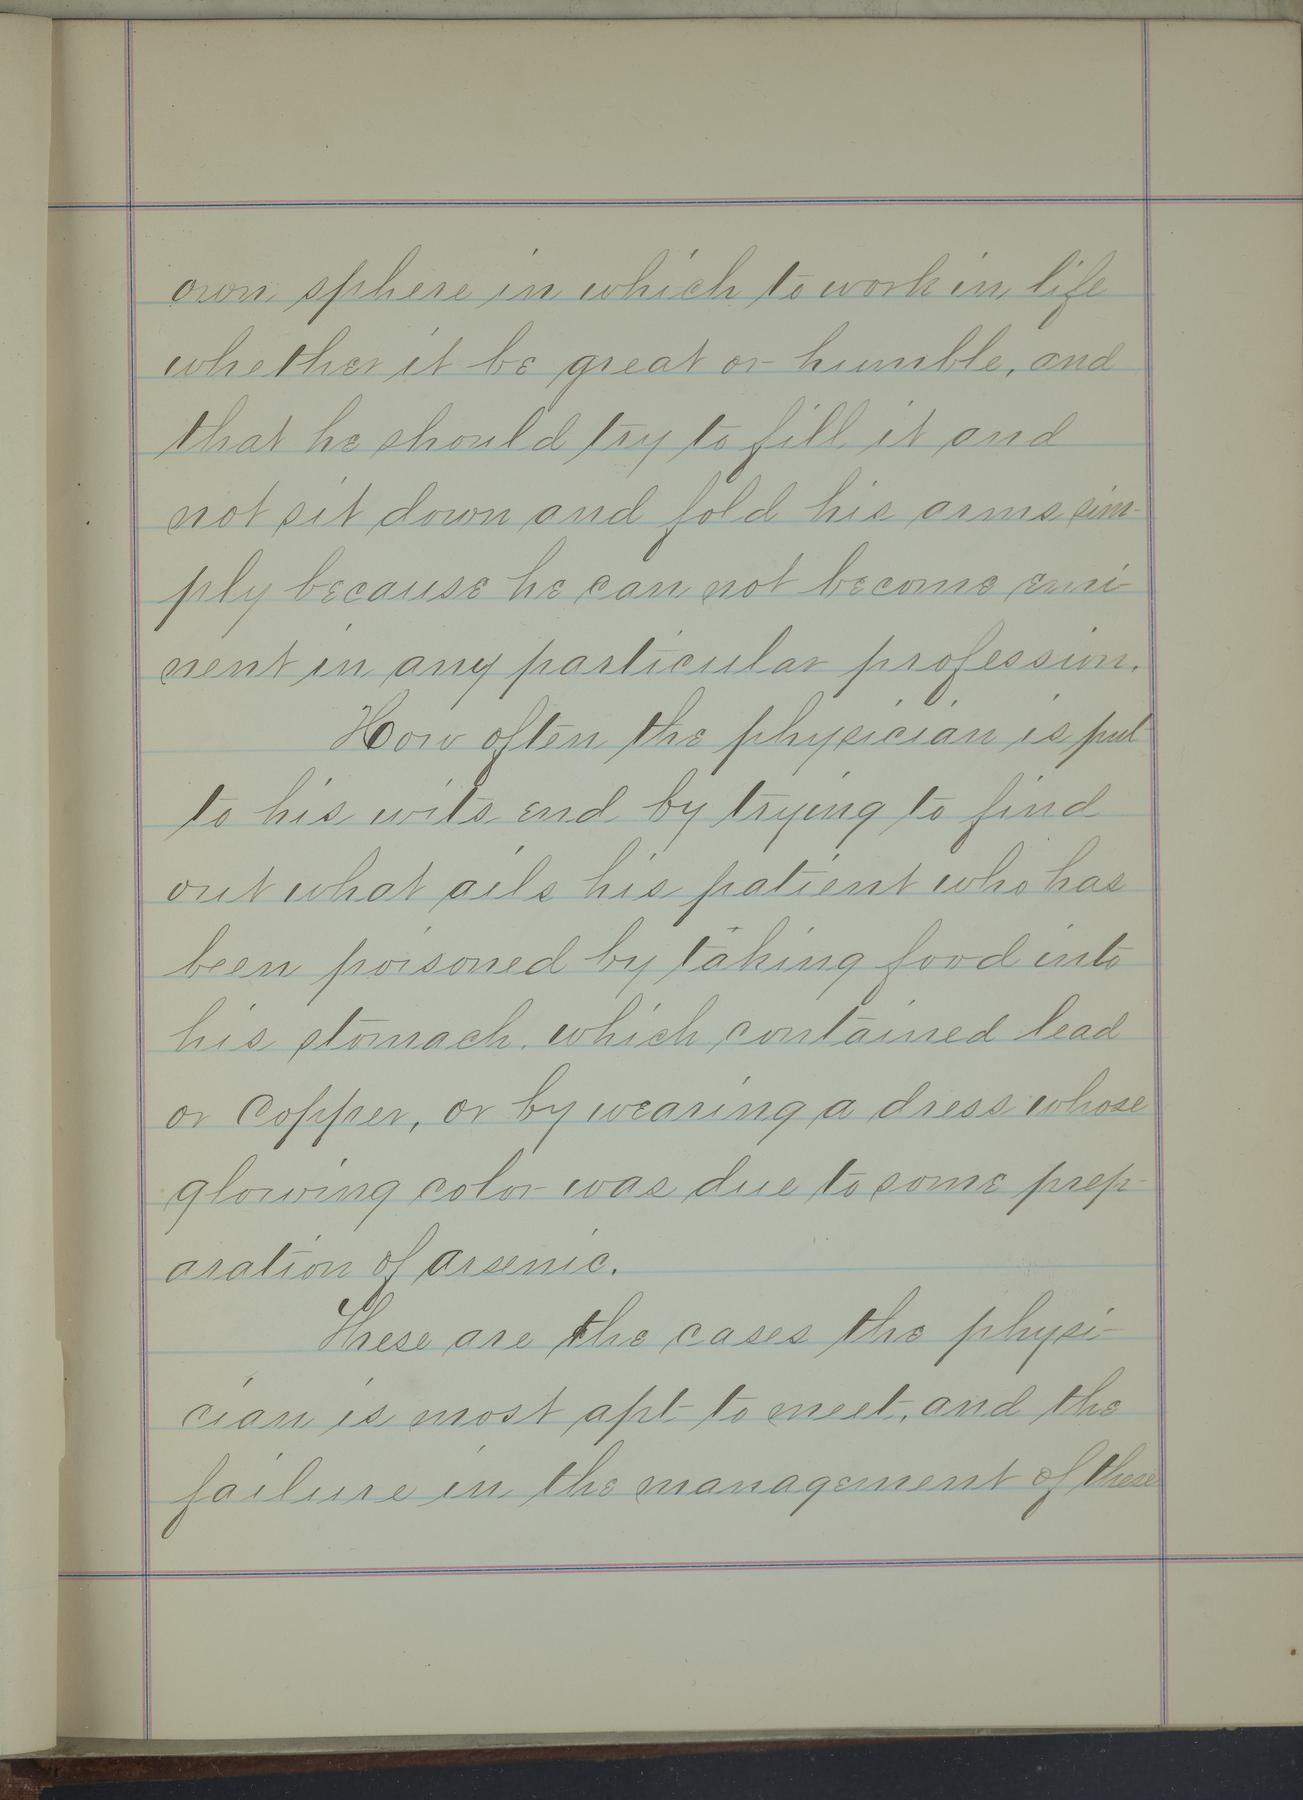 own sphere in which to work in life
whether it be great or humble, and
that he should try to fill it and
not sit down and fold his arms sim-
ply because he can not become emi-
nent in any particular profession.
How often the physician is put
to his wits end by trying to find
out what ails his patient who has
been poisoned by taking food into
his stomach. which contained lead
or Copper, or by wearing a dress whose
glowing color was due to some prep-
aration of arsenic.
These are the cases the physi-
cian is most apt to meet, and the
failure in the management of these